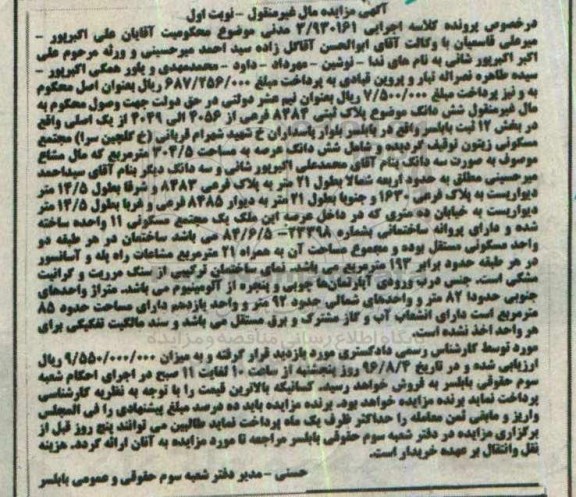 آگهی مزایده مال غیرمنقول - نوبت اول
درخصوص پرونده کلاسه اجرایی ۳/۹۳۰۱۶۱ مدنی موضوع محکومیت آقایان علی اکبرپور -
میرعلی قاسمیان با وکالت آقای ابوالحسن آقاگل زاده سید احمد میرحسینی و ورثه مرحوم علی
اکبر اکبرپور شانی به نام های ندا - نوشین - مهرداد - داود - محمدمهدی و یاور همگی اکبرپور -
سیده طاهره نصراله تبار و پروین قبادی به پرداخت مبلغ ۶۸۷/۲۵۶/۰۰۰ ریال بعنوان اصل محکوم
به و نیز پرداخت مبلغ ۷/۵۰۰/۰۰۰ ریال بعنوان نیم عشر دولتی در حق دولت جهت وصول محکوم به
مال غیرمنقول شش دانگ موضوع پلاک ثبتی ۸۴۸۴ فرعی از ۴۰۵۶ الی ۴۰۴۹ از یک اصلی واقع
در بخش ۱۲ ثبت بابلسر واقع در بابلسر بلوار پاسداران خ شهید شهرام قربانی (خ گلچین سرا) مجتمع
مسکونی زیتون توقیف گردیده و شامل شش دانگ عرصه به مساحت ۳۰۴/۵ مترمربع که مال مشاع
موصوف به صورت سه دانگ بنام آقای محمدعلی اکبرپور شانی و سه دانگ دیگر بنام آقای سیداحمد
میرحسینی مطلق به حدود اربعه شمالا بطول ۲۱ متر به پلاک فرعی ۸۴۸۳ و شرقا بطول ۱۴/۵ متر
دیواریست به پلاک فرعی ۱۶۳۰ و جنوبا بطول ۲۱ متر به دیوار ۸۴۸۵ فرعی و غربا بطول ۱۴/۵ متر
دیواریست به خیابان ده متری که در داخل عرصه این ملک یک مجتمع مسکونی ۱۱ واحده ساخته
شده و دارای پروانه ساختمانی بشماره ۲۳۳۹۸ - ۸۴/۶/۵ می باشد ساختمان در هر طبقه دو
واحد مسکونی مستقل بوده و مجموع مساحت آن به همراه ۲۱ مترمربع مشاعات راه پله و آسانسور
در هر طبقه حدود برابر ۱۹۳ مترمربع می باشد. نمای ساختمان ترکیبی از سنگ مرریت و گرانیت
مشکی است. جنس درب ورودی آپارتمانها چوبی و پنجره از آلومینیوم می باشد. متراژ واحدهای
جنوبی حدودا ۸۲ متر و واحدهای شمالی حدود ۹۲ متر و واحد یازدهم دارای مساحت حدود ۸۵
مترمربع است دارای انشعاب آب و گاز مشترک و برق مستقل می باشد و سند مالکیت تفکیکی برای
هر واحد اخذ نشده است.
مورد توسط کارشناس رسمی دادگستری مورد بازدید قرار گرفته و به میزان ۹/۵۵۰/۰۰۰/۰۰۰ ریال
ارزیابی شده و در تاریخ ۹۶/۸/۴ روز پنجشنبه از ساعت ۱۰ لغایت ۱۱ صبح در اجرای احکام شعبه
سوم حقوقی بابلسر به فروش خواهد رسید. کسانیکه بالاترین قیمت را با توجه به نظریه کارشناسی
پرداخت نماید برنده مزایده خواهد بود. برنده مزایده باید ده درصد مبلغ پیشنهادی را فی المجلس
واریز و مابقی ثمن معامله را حداکثر ظرف یک ماه پرداخت نماید طالبین می توانند پنج روز قبل از
برگزاری مزایده در دفتر شعبه سوم حقوقی بابلسر مراجعه تا مورد مزایده به آنان ارائه گردد. هزینه
نقل وانتقال بر عهده خریدار است.
حسنی - مدیر دفتر شعبه سوم حقوقی و عمومی بابلسر